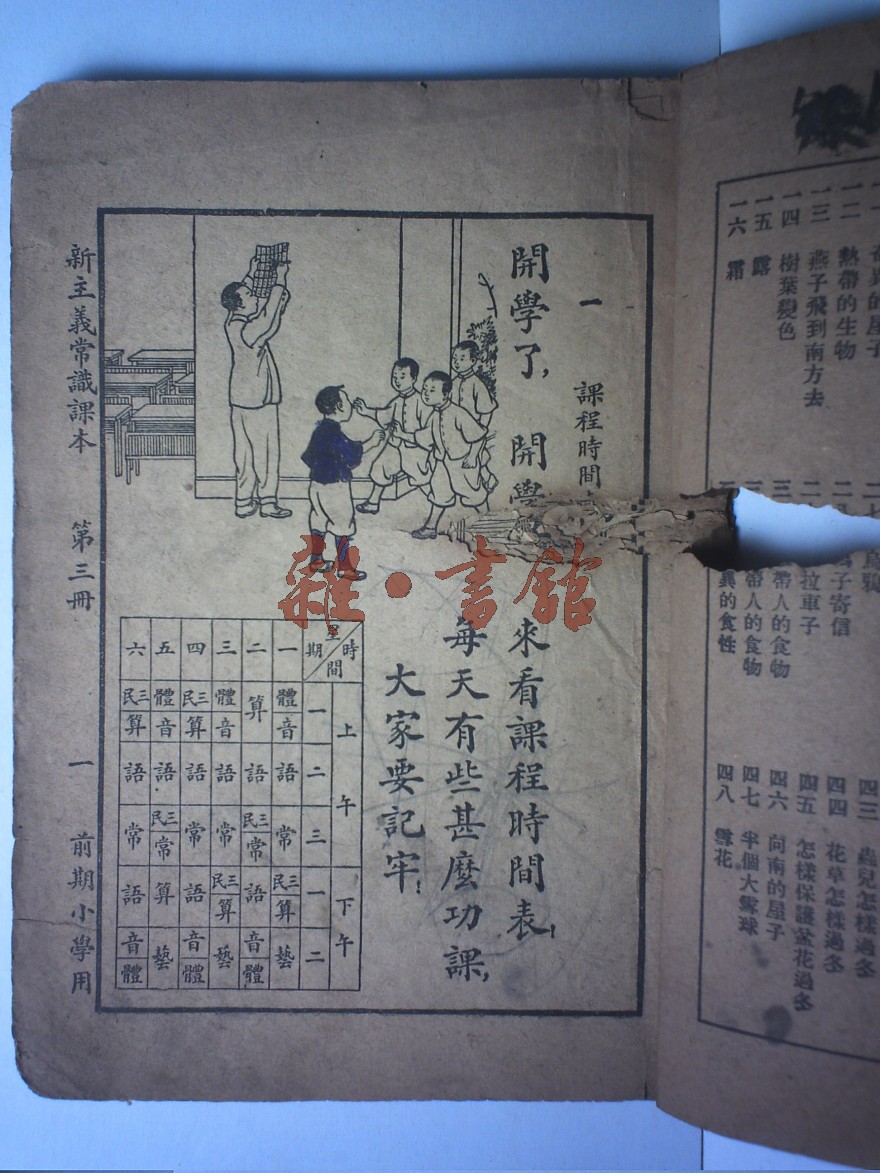 的屋子
一二 熱帶的生物
一三 燕子飛到南方去
一四 樹葉變色
一五 露
一六 霜
烏鴉
子寄信
拉車子
帶人的食物
帶人的食物
異的食性
四三 蟲兒怎樣過冬
四四 花草怎樣過冬
四五 怎樣保護盆花過冬
四六 向南的屋子
四七 半個大雪球
四八 雪花
一 課程時間
開學了, 開學
來看課程時間表!
每天有些甚麼功課,
大家要記牢!
時間 上午 下午
星期 一 二 三 一 二
一 體音 語 常 三民算 藝
二 算 語 三民常 語 音體
三 體音 語 常 三民算 藝
四 三民算 語 常 語 音體
五 體音 語 三民常 算 藝
六 三民算 語 常 語 音體
新主義常識課本 第三冊 一 前期小學用
雜·書館